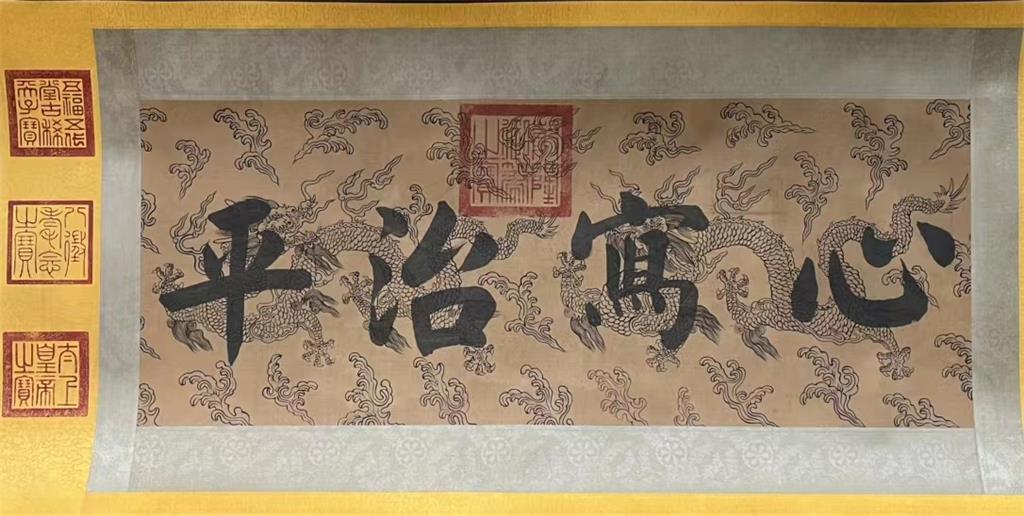 心寫治平
五福五代堂古稀天子寶
八徵耄念之寶
太上皇帝之寶